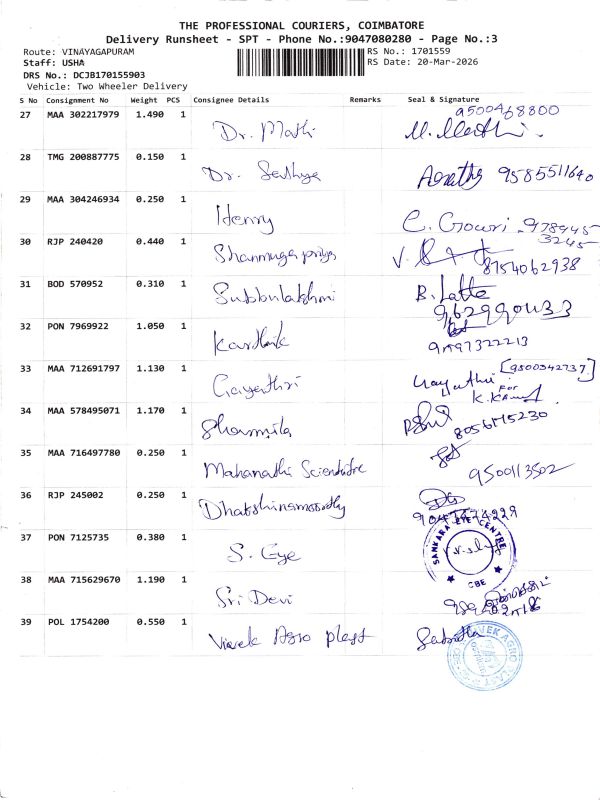 THE PROFESSIONAL COURIERS, COIMBATORE
Delivery Runsheet - SPT - Phone No.:9047080280 - Page No.:3
Route: VINAYAGAPURAM
RS No.: 1701559
Staff: USHA
RS Date: 20-Mar-2026
DRS No.: DCJB170155903
Vehicle: Two Wheeler Delivery
S No Consignment No Weight PCS Consignee Details Remarks Seal & Signature
27 MAA 302217979 1.490 1 Dr. Mathi 9500468800
28 TMG 200887775 0.150 1 Dr. Sathya 9585511640
29 MAA 304246934 0.250 1 Henry C. Gowri - 978945
3245
30 RJP 240420 0.440 1 Shanmuga priya 8754062938
31 BOD 570952 0.310 1 Subbulakshmi B. Latte
9629900433
32 PON 7969922 1.050 1 Karthik
33 MAA 712691797 1.130 1 Gayathri Gayathri [9500342737]
for
34 MAA 578495071 1.170 1 Sharmila
35 MAA 716497780 0.250 1 Mahanathi Scientifire 9500113502
36 RJP 245002 0.250 1 Dhakshinamoorthy
9047474229
37 PON 7125735 0.380 1 S. Eye SANKARA EYE CENTRE CBE
38 MAA 715629670 1.190 1 Sri Devi
39 POL 1754200 0.550 1 Vivek Agro plast Sabitha VIVEK AGRO PLAST